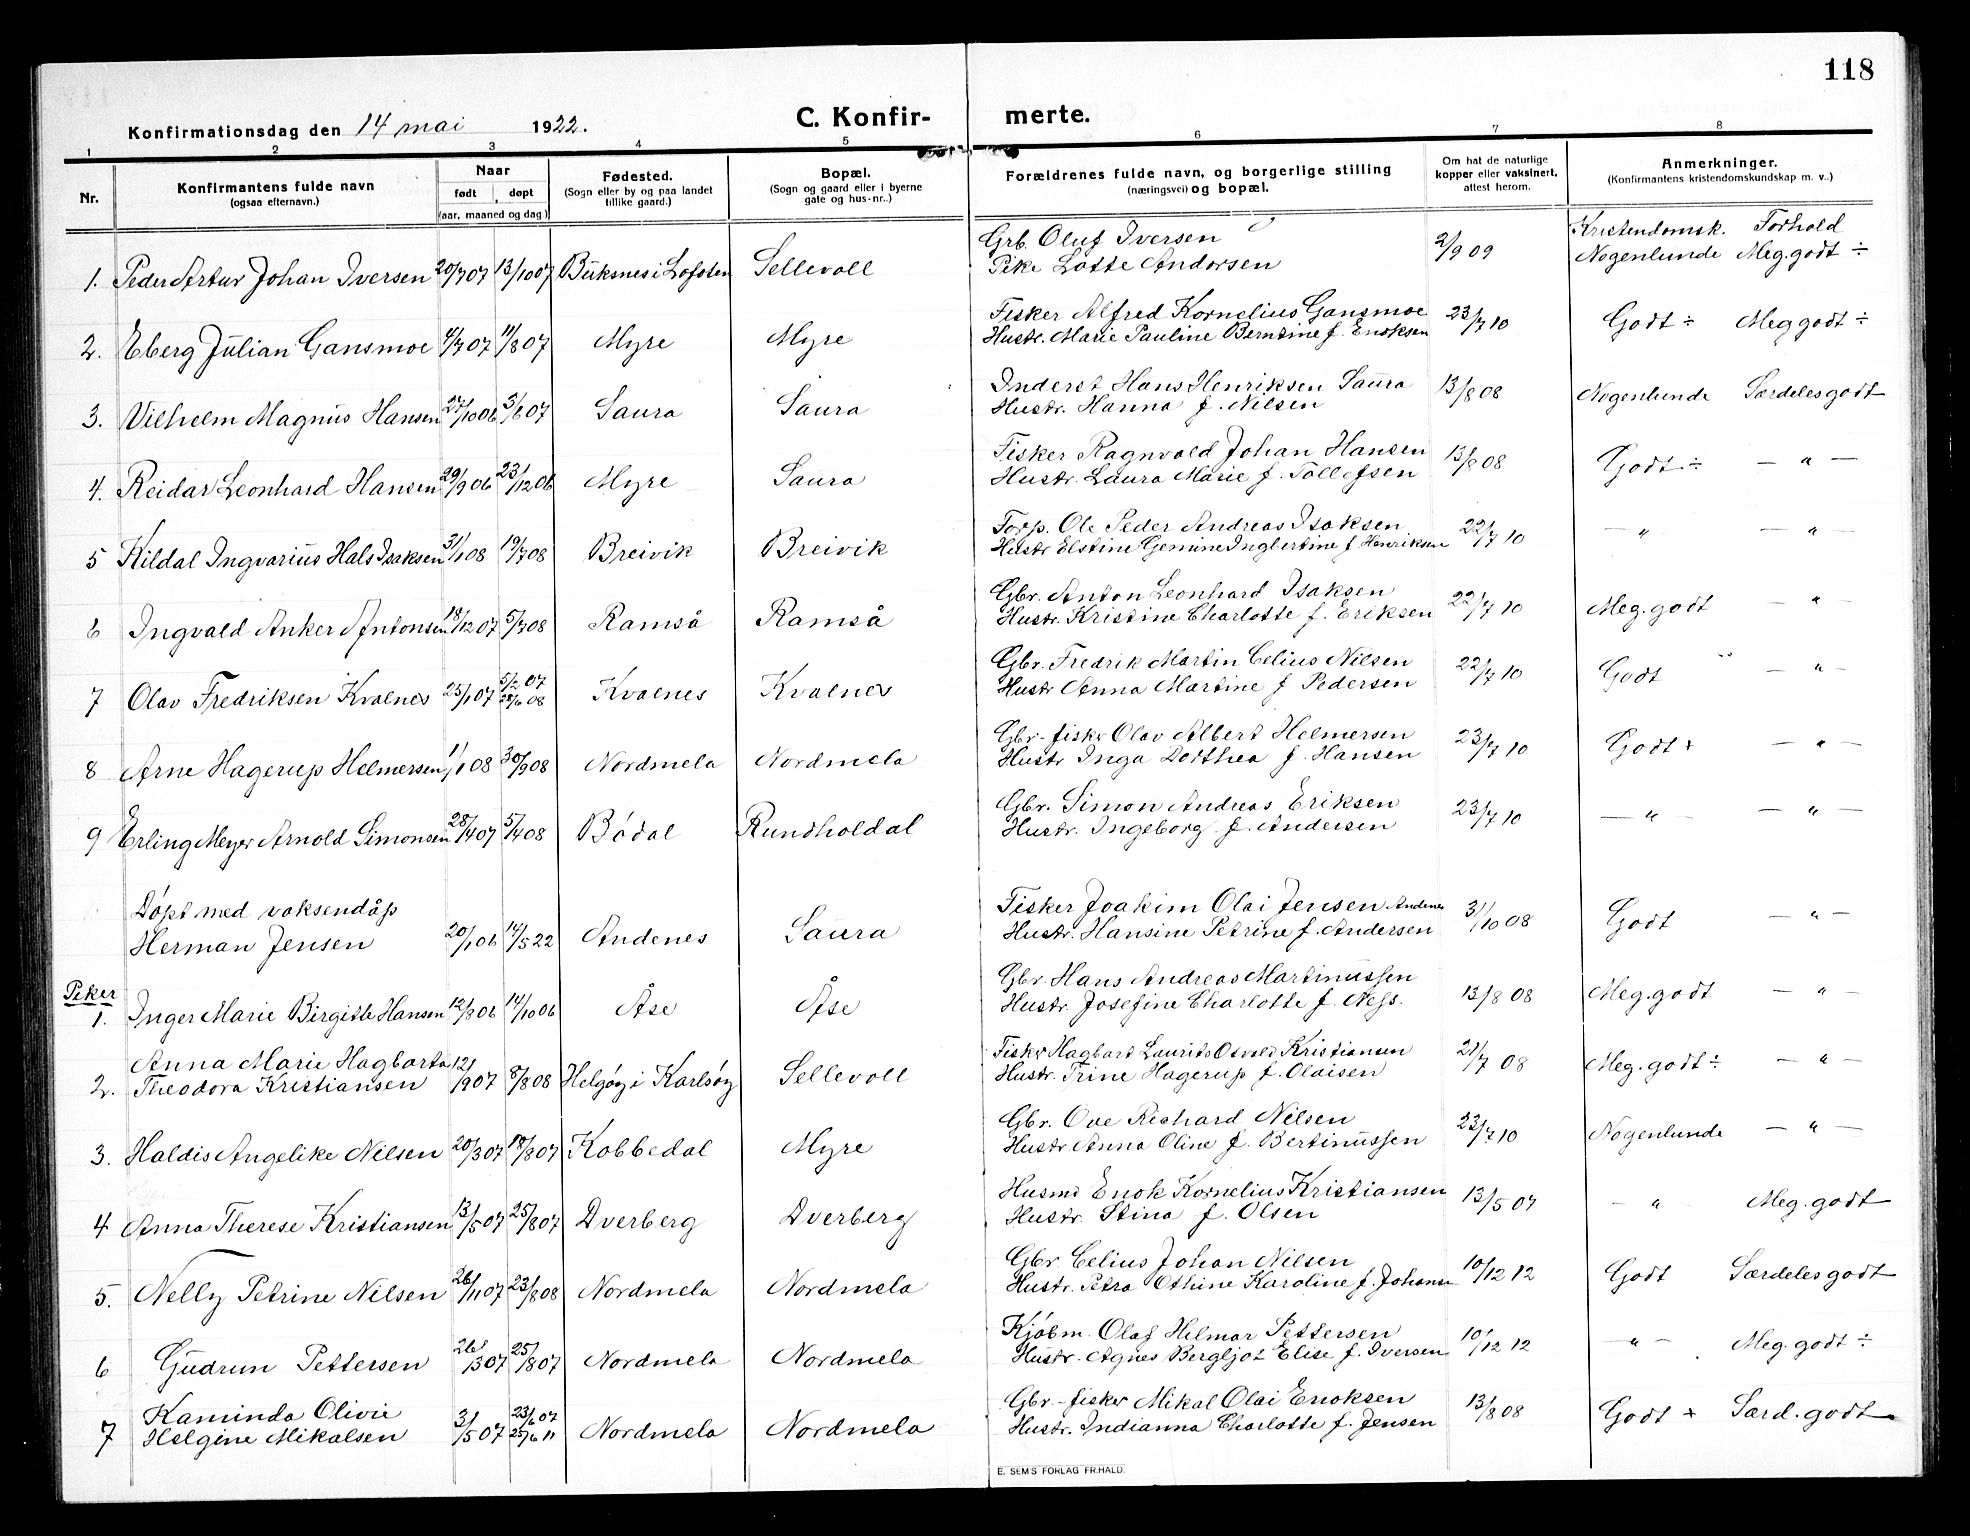 118
Konfirmationsdag den 14 mai 1922.
C. Konfirmerte.
1 2 3 4 5 6 7 8
Nr.
Konfirmantens fulde navn
(ogsaa efternavn.)
Naar
født døpt
(aar, maaned og dag)
Fødested.
(Sogn eller by og paa landet
tillike gaard.)
Bopæl.
(Sogn og gaard eller i byerne
gate og hus-nr..)
Forældrenes fulde navn, og borgerlige stilling
(næringsvei) og bopæl.
Om hat de naturlige
kopper eller vaksinert,
attest herom.
Anmerkninger.
(Konfirmantens kristendomskundskap m. v..)
Kristendomsk. Forhold
1. Peder Artur Johan Iversen 20/7 07 13/10 07 Buksnes i Lofoten Sellevoll
Grb. Oluf Iversen
Pike Lotte Andorsen
2/9 09 Nogenlunde Meg. godt ÷
2. Eberg Julian Gansmoe 4/7 07 11/8 07 Myre Myre
Fisker Alfred Kornelius Gansmoe
Hustr. Marie Pauline Berntine f. Enoksen
23/7 10 Godt ÷ Meg godt ÷
3. Vilhelm Magnus Hansen 27/10 06 3/6 07 Saura Saura
Inderst Hans Henriksen Saura
Hustr. Hanna f. Nilsen
13/8 08 Nogenlunde Særdeles godt
4. Reidar Leonhard Hansen 29/9 06 23/12 06 Myre Saura
Fisker Ragnvald Johan Hansen
Hustr. Laura Marie f. Tollefsen
13/8 08 Godt ÷ — " —
5 Kildal Ingvarius Hals Isaksen 31/1 08 19/7 08 Breivik Breivik
Forp. Ole Peder Andreas Isaksen
Hustr Elstine Gemine Ingbertine f. Henriksen
22/7 10 — " — — " —
6 Ingvald Anker Antonsen 18/12 07 5/7 08 Ramså Ramså
Gbr. Anton Leonhard Isaksen
Hustr. Kristine Charlotte f. Eriksen
22/7 10 Meg. godt — " —
7 Olav Fredriksen Kvalnes 25/1 07 5/2 07 28/6 08 Kvalnes Kvalnes
Gbr. Fredrik Martin Celius Nilsen
Hustr Anna Martine f Pedersen
22/7 10 Godt — " —
8 Arne Hagerup Helmersen 1/1 08 30/9 08 Nordmela Nordmela
Gbr-fisker Olav Albert Helmersen
Hustr Inga Dorthea f. Hansen
23/7 10 Godt + — " —
9 Erling Meyer Arnold Simonsen 28/4 07 5/4 08 Bödal Rundholdal
Gbr. Simon Andreas Eriksen
Hustr. Ingeborg f. Andersen
23/7 10 — " — — " —
Döpt med voksendåp
Herman Jensen 20/1 06 14/5 22 Andenes Saura
Fisker Joakim Olai Jensen Andenes
Hustr. Hansine Petrine f. Andersen
31/10 08 Godt — " —
Piker
1. Inger Marie Birgitte Hansen 12/8 06 14/10 06 Åse Åse
Gbr. Hans Andreas Martinussen
Hustr. Josefine Charlotte f. Ness.
13/8 08 Meg. godt — " —
Anna Marie Hagbarta
2. Theodora Kristiansen 12/9 07 8/8 08 Helgöy i Karlsöy Sellevoll
Fisker Hagbart Laurits Osvald Kristiansen
Hustr. Trine Hagerup f. Olaisen
21/7 08 Meg. godt ÷ — " —
3. Haldis Angelike Nilsen 20/3 07 18/8 07 Kobbedal Myre
Gbr. Ove Richard Nilsen
Hustr Anna Oline f. Bertinussen
23/7 10 Nogenlunde — " —
4 Anna Therese Kristiansen 13/5 07 25/8 07 Dverberg Dverberg
Husmd Enok Kornelius Kristiansen
Hustr. Stina f. Olsen
13/5 07 — " — Meg. godt
5. Nelly Petrine Nilsen 26/11 07 23/8 08 Nordmela Nordmela
Gbr. Celius Johan Nilsen
Hustr. Petra Othine Karoline f. Johansn
10/12 12 Godt Særdeles godt
6 Gudrun Pettersen 26/3 07 25/8 07 Nordmela Nordmela
Kjöbm. Olaf Hilmar Pettersen
Hustr. Agnes Bergljot Elise f. Iversen
10/12 12 — " — Meg. godt ÷
Kaminda Olivie
7 Helgine Mikalsen 3/5 07 23/6 07 25/6 11 Nordmela Nordmela
Gbr.-fisker Mikal Olai Enoksen
Hustr. Indianna Charlotte f. Jensen
13/8 08 Godt + Særd. godt
E. SEMS FORLAG FR.HALD.